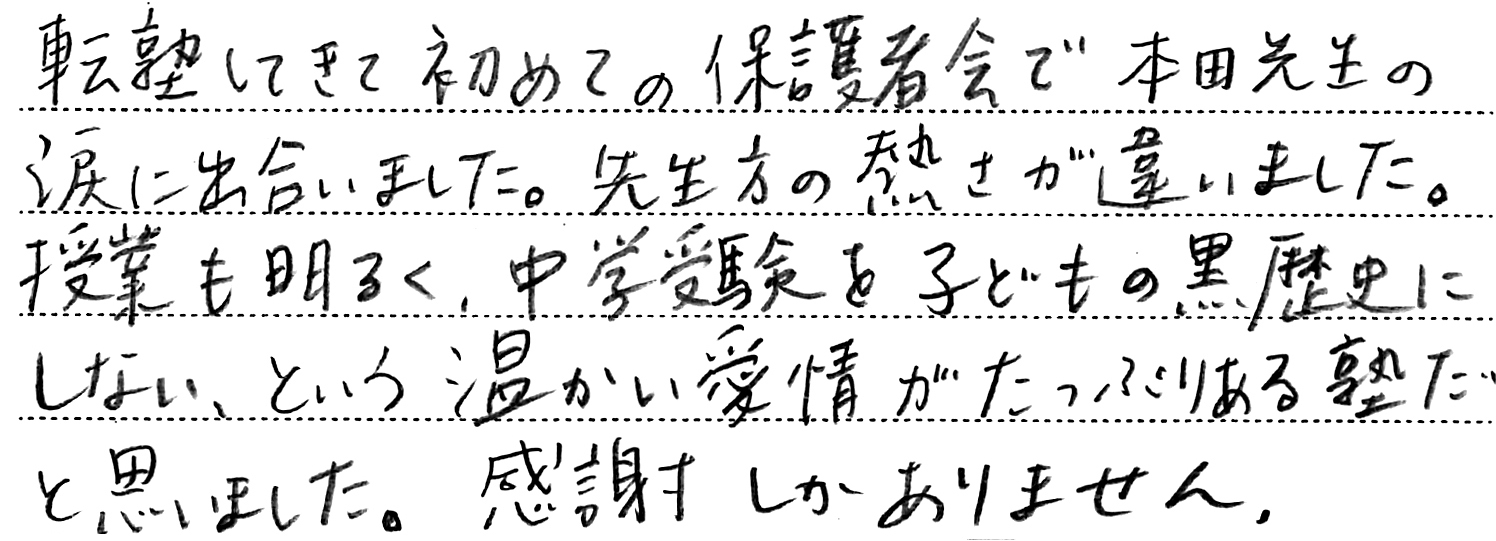 転塾してきて初めての保護者会で本田先生の
涙に出合いました。先生方の熱さが違いました。
授業も明るく、中学受験を子どもの黒歴史に
しない、という温かい愛情がたっぷりある塾だ
と思いました。感謝しかありません。